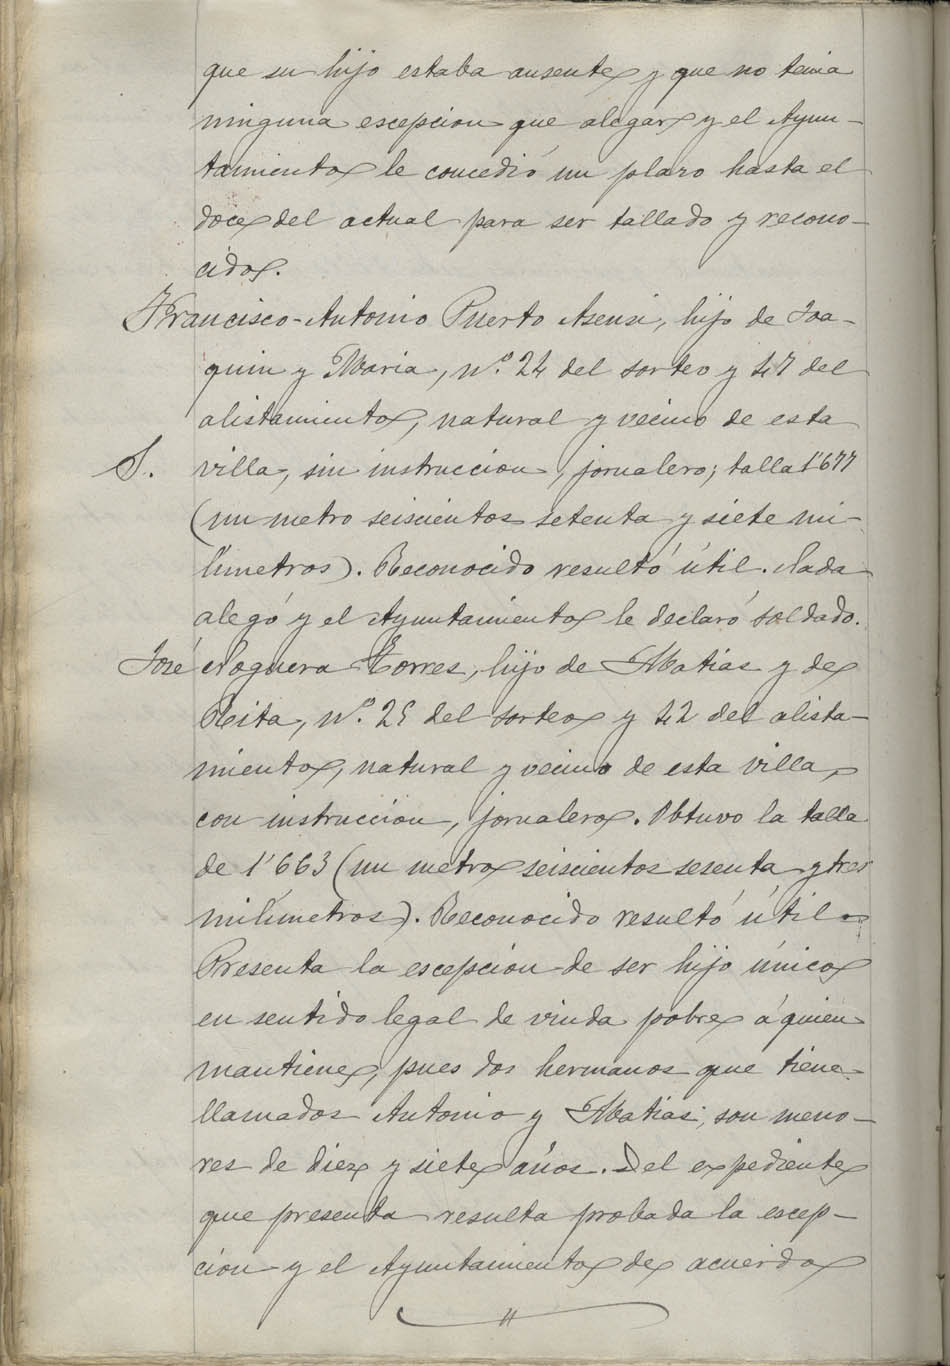 que su hijo estaba ausente y que no tenia
ninguna escepcion que alegar y el Ayun-
tamiento le concedió un plazo hasta el
doce del actual para ser tallado y recono-
cido.
Francisco-Antonio Puerto Asensi, hijo de Joa-
quin y Maria, n.º 24 del sorteo y 47 del
alistamiento, natural y vecino de esta
S. villa, sin instruccion, jornalero; talla 1'677
(un metro seiscientos setenta y siete mi-
límetros). Reconocido resultó útil. Nada
alegó y el Ayuntamiento le declaró soldado.
José Noguera Torres, hijo de Matias y de
Rita, n.º 25 del sorteo y 42 del alista-
miento, natural y vecino de esta villa,
con instruccion, jornalero. Obtuvo la talla
de 1'663 (un metro seiscientos sesenta y tres
milímetros). Reconocido resultó útil.
Presenta la escepcion de ser hijo único
en sentido legal de viuda pobre á quien
mantiene, pues dos hermanos que tiene
llamados Antonio y Matias, son meno-
res de diez y siete años. Del expediente
que presenta resulta probada la escep-
cion y el Ayuntamiento de acuerdo